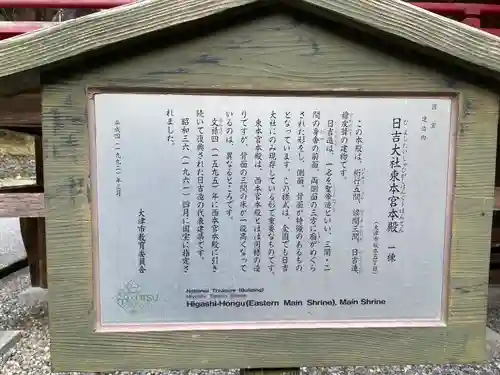 国宝
建造物
日吉大社東本宮本殿 一棟
ひよしたいしゃひがしほんぐうほんでん
(大津市坂本五丁目)
この本殿は、桁行五間、梁間三間、日吉造、
檜皮葺の建物です。
日吉造は、一名を聖帝造といい、三間・二
間の身舎の前面、両側面の三方に庇がめぐら
された形をし、側面、背面が特徴のあるもの
となっています。この様式は、全国でも日吉
大社にのみ現存している形で貴重なものです。
東本宮本殿は、西本宮本殿とほぼ同様の造
りですが、背面の三間の床が一段高くなって
いるのは、異なるところです。
文禄四(一五九五)年に西本宮本殿に引き
続いて復興された日吉造の代表建築です。
昭和三六(一九六一)四月に国宝に指定さ
れました。
平成四(一九九二)年三月
大津市教育委員会
National Treasure (Building)
Hiyoshi Taisha Shrine
Higashi-Hongu(Eastern Main Shrine), Main Shrine